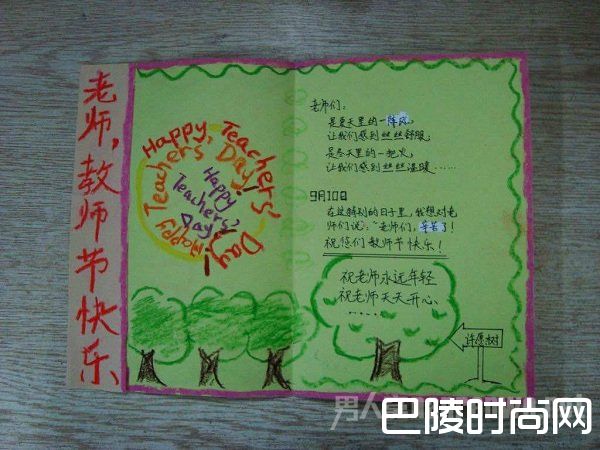 老师,教师节快乐
Happy Teachers' Day!
Happy Teachers' Day!
Happy Teachers' Day!
老师们:
是夏天里的一阵风,
让我们感到丝丝舒服,
是冬天里的一把火,
让我们感到丝丝温暖······
9月10日
在这特别的日子里,我想对老
师们说:“老师们,辛苦了!
祝您们教师节快乐!
祝老师永远年轻
祝老师天天开心
······
许愿树
男人
巴陵时尚网